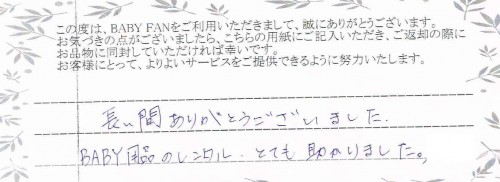 この度は、BABY FANをご利用いただきまして、誠にありがとうございます。
お気づきの点がございましたら、こちらの用紙にご記入いただき、ご返却の際に
お品物に同封していただければ幸いです。
お客様にとって、よりよいサービスをご提供できるように努力いたします。
長い間ありがとうございました.
BABY用品のレンタル.とても助かりました。